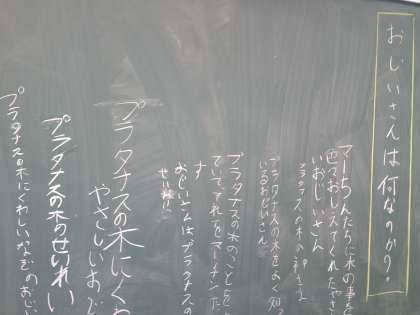 おじいさんは何なのか?
マーちんたちに木の事を
おしえてくれたやさ
いおじいさん
プラタナスの木の神さま
プラタナスの木をよく知っ
ているおじいさん
プラタナスの木のことをと
ていてそれをマーチンた
す
おじいさんはプラタナスの
せい
プラタナスの木にくわ
やさしいおじ
プラタナスの木のせいれい
プラタナスの木にくわしいなぞのおじい